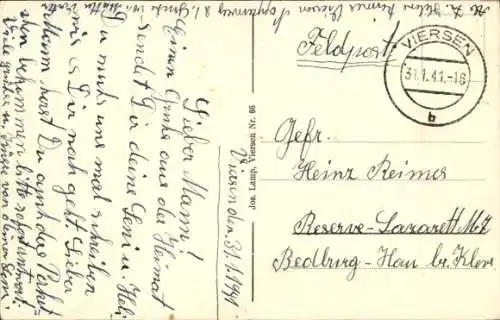 Lieber Mann!
Einen Gruß aus der Heimat
sendet Dir deine Leni u. Heli
Du mußt uns mal schreiben
wie es Dir noch geht. Lieber
Mann hast Du auch das Paket
bekommen bitte sofort antwort.
Viele Grüße u. Küsse von deiner Leni.
Viersen den 31.1.1941
Jos. Lamp, Viersen Nr. 66
Feldpost
VIERSEN
31.1.41.-16
b
Gefr.
Heinz Reimes
Reserve-Lazarett
Bedburg-Hau br. Kleve